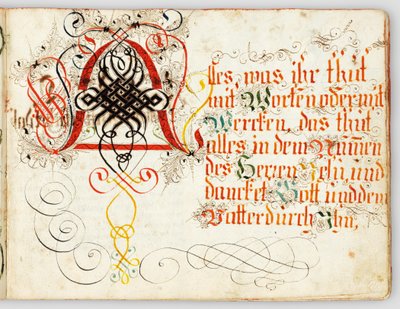 Alles, was ihr thut
mit Worten oder mit
Wercken, das thut
alles in dem Namen
des Herren Jesu, und
dancket Gott und dem
Vatter durch Ihn,